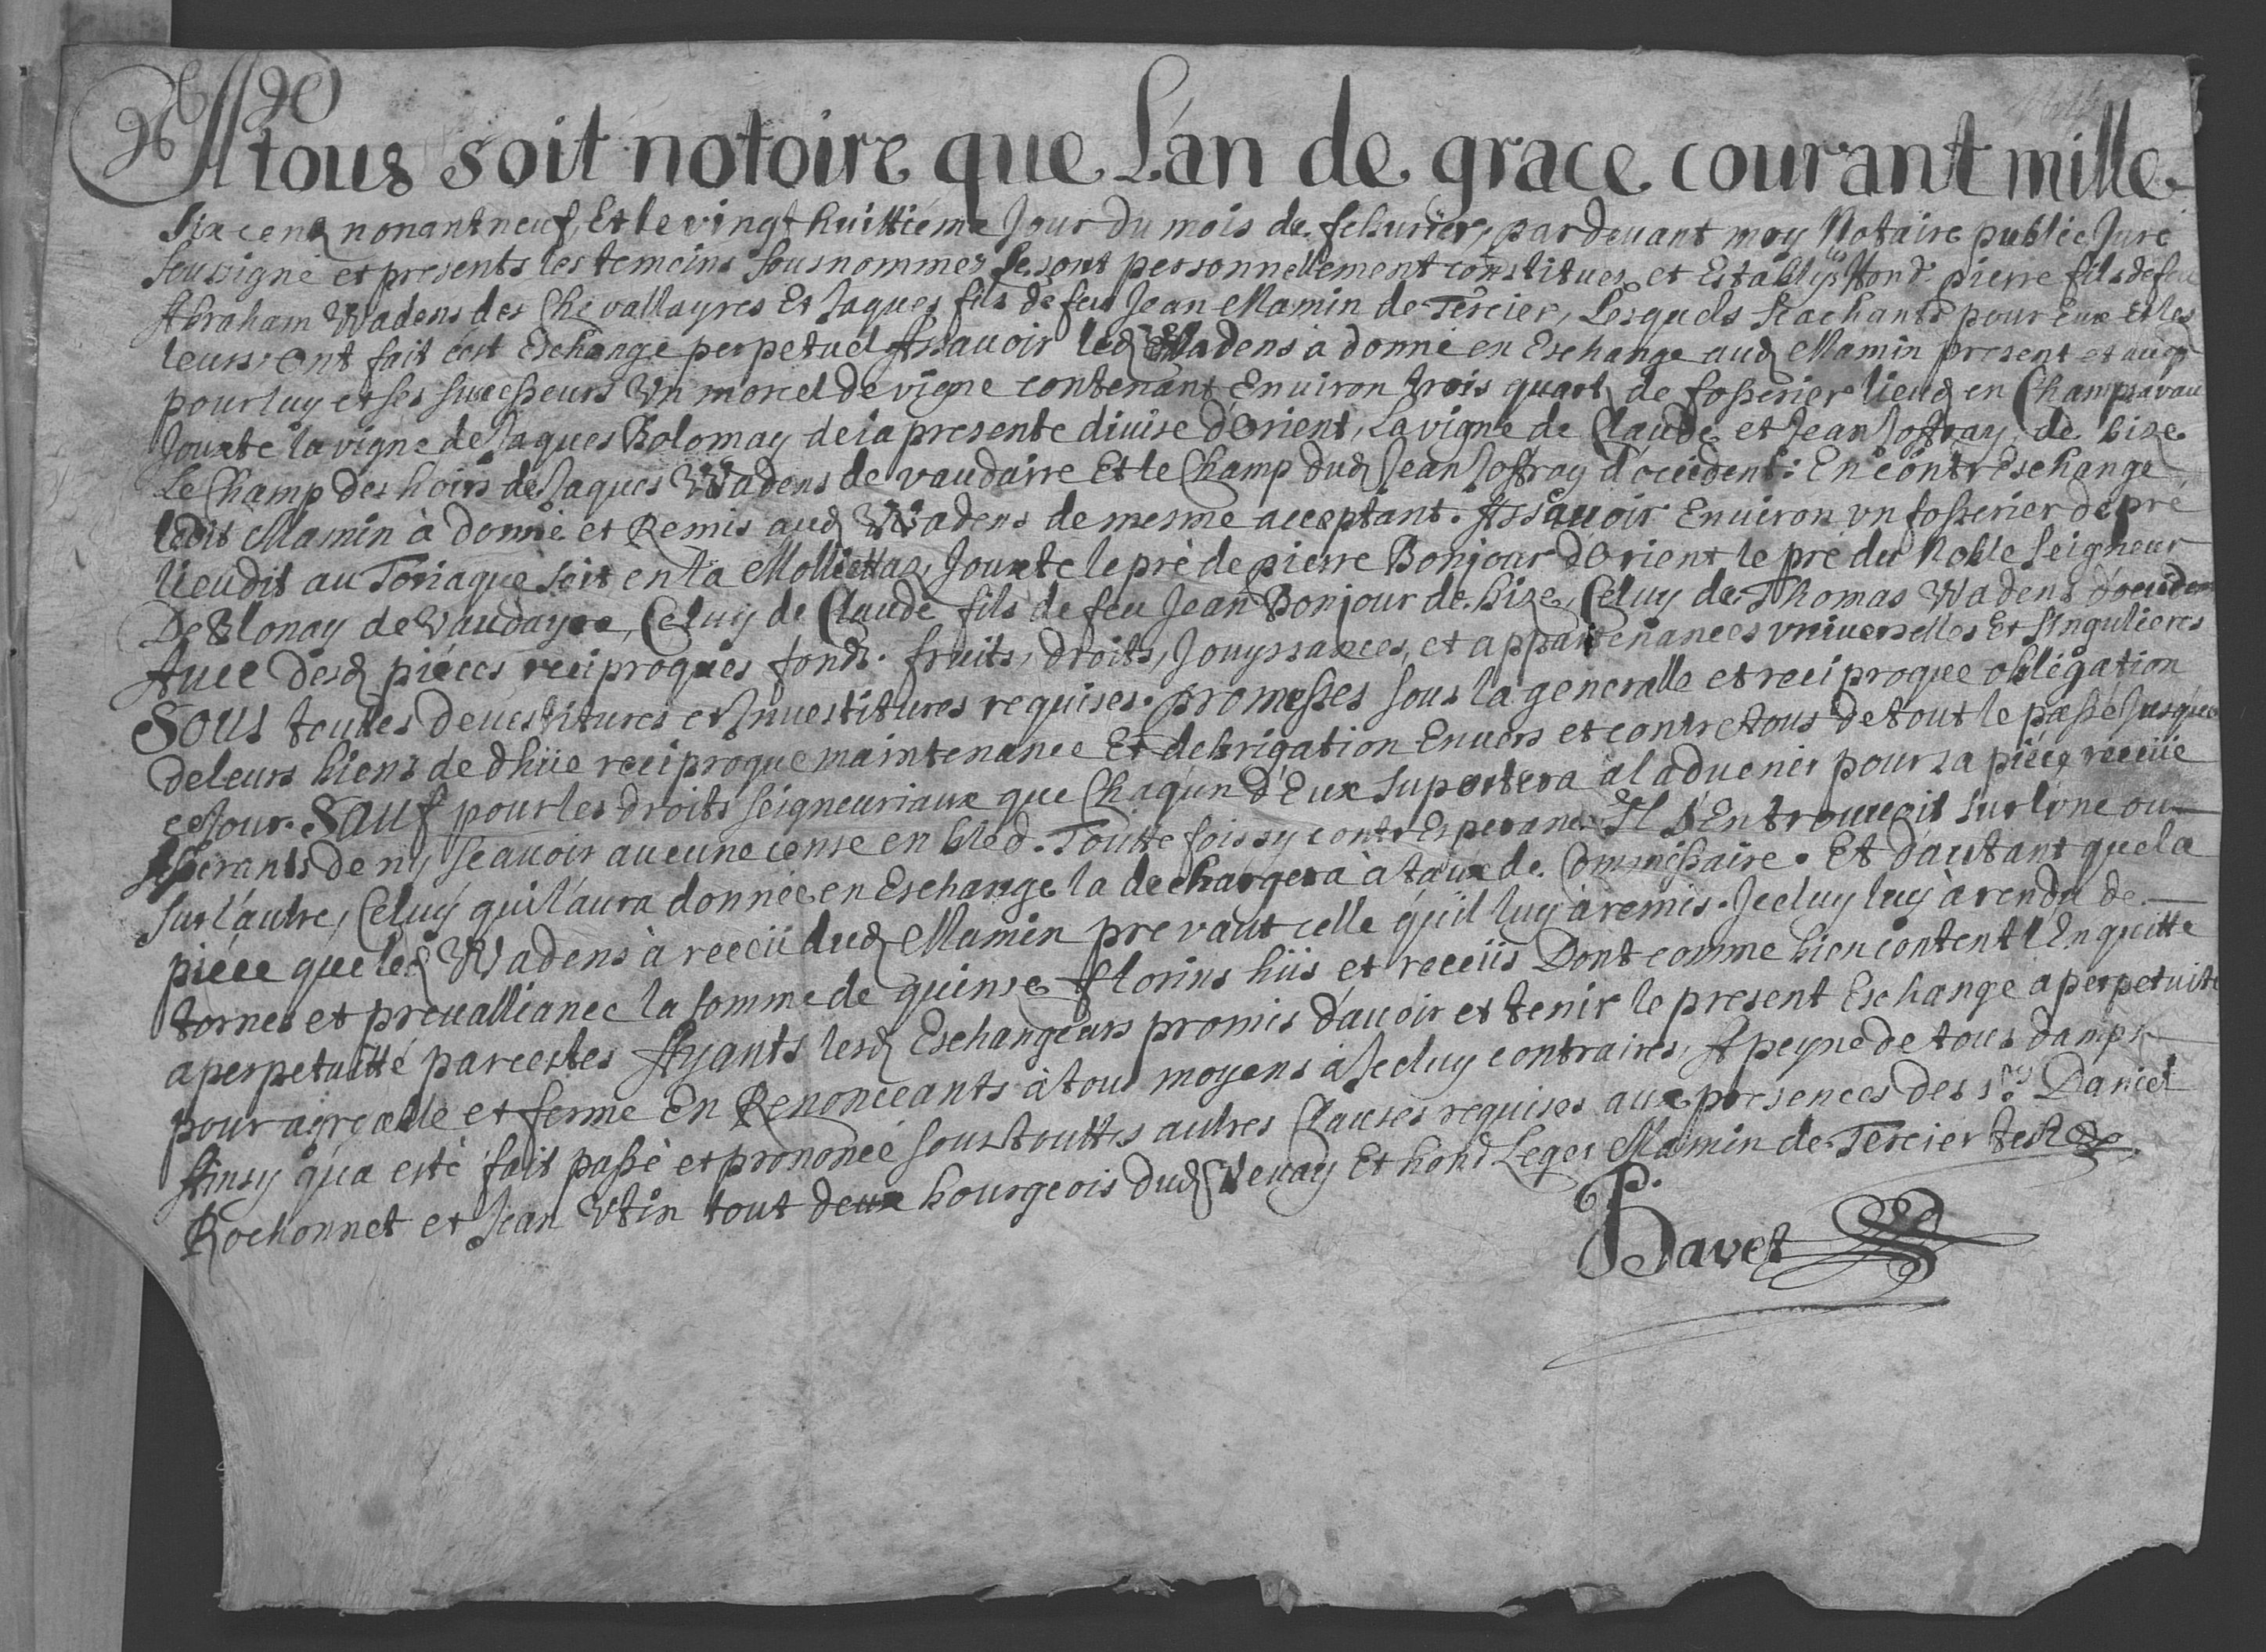 A tous soit notoire que L'an de grace courant mille
Six cens nonant neuf, Et le vingt huittiéme Jour du mois de febvrier, par devant moy Notaire public Juré
soussigné et presents les temoins sousnommez se sont personnellement constituez et Establijs Hond. pierre fils de feu
Abraham Wadens des Chevallayres Et Jaques fils de feu Jean Mamin de Tercier, Lesquels Scachants pour Eux Et les
leurs, ont fait cest Eschange perpetuel Assavoir led Wadens à donné en Eschange aud Mamin present et
pour luy et ses successeurs Un morcel de vigne contenant Environ trois quart de fosserier lieud en
Jouxte la vigne de Jaques Bolomay de la presente divise d'orient, La vigne de Claude et Jean Joffray, de bize
Le Champ des hoirs de Jaques Wadens de vaudaire Et le Champ dud Jean Joffray d'occident: En contreschange
ledit Mamin à donné et Remis aud Wadens de mesme acceptant. Assavoir Environ vn fosserier de pré
lieudit au Toriaque soit en la Molliettaz, Jouxte le pré de pierre Bonjour d'orient le pré du Noble Seigneur
De Blonay de Vaudayre, Celuy de Claude fils de feu Jean Bonjour de bize, Celuy de Thomas Wadens d'occident
Avec desd piéces reciproques fonds. fruits, droits, Jouyssances, et appartenances vniverselles Et Singulieres
SOUS toutes devestitures et Investitures requises. promesses sous la generalle et reciproque obligation
de leurs biens de dhüe reciproque maintenance Et debrigation Envers et contre tous de tout le passé Jusques
ce Jour. Sauf pour les droits seigneuriaux que Chaqun d'Eux suportera a l advenir pour sa piéce receüe
Esperants de ny scavoir aucune cense en bled. Toutte fois sy contr Esperance Il s'En trouvoit sur l'vne ou
sur l'autre, Celuy qui l'aura donnée en Eschange la dechargera à taux de Commissaire. Et d'autant que la
piéce que led Wadens à receü dud Mamin prevaut celle qu'il luy à remis. Jceluy luy à rendu de
tornes et prevalliance la somme de quinse florins büs et receüs Dont comme bien content l'En quitte
a perpetuitté par cestes Ayants lesd Eschangeurs promis d'avoir et tenir le present Eschange a perpetuité
pour agreable et ferme En Renonceants à tous moyens à Jceluy contraires, A peyne de tous damps
Ainsy qua esté fait passé et prononcé sous touttes autres Clauses requises aux presences des srs. Daniel
Rochonnet et Jean Vtin tout deux bourgeois dud Vevay Et hond Leger Mamin de Tercier test
P.
Bavet